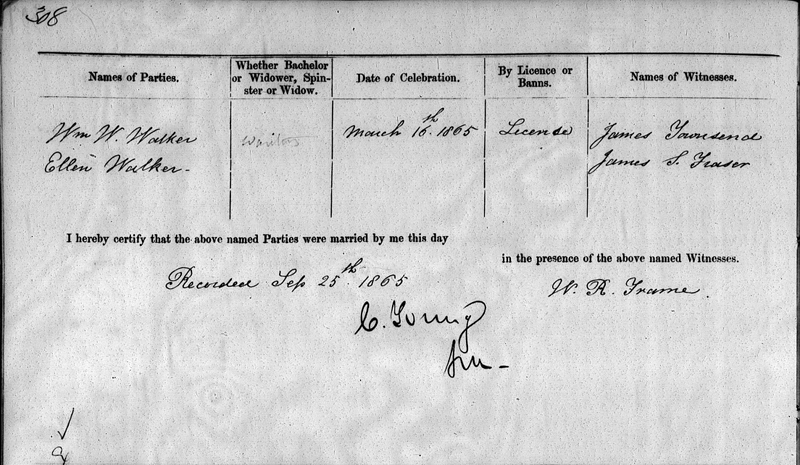 308
Names of Parties.
Whether Bachelor or Widower, Spin-ster or Widow.
Date of Celebration.
By Licence or Banns.
Names of Witnesses.
Wm W. Walker
March 16th 1865
License
James Townsend
Ellen Walker-
James S. Fraser
I hereby certify that the above named Parties were married by me this day
in the presence of the above named Witnesses.
Recorded Sep 25th 1865
W. R. Frame.
C. Young